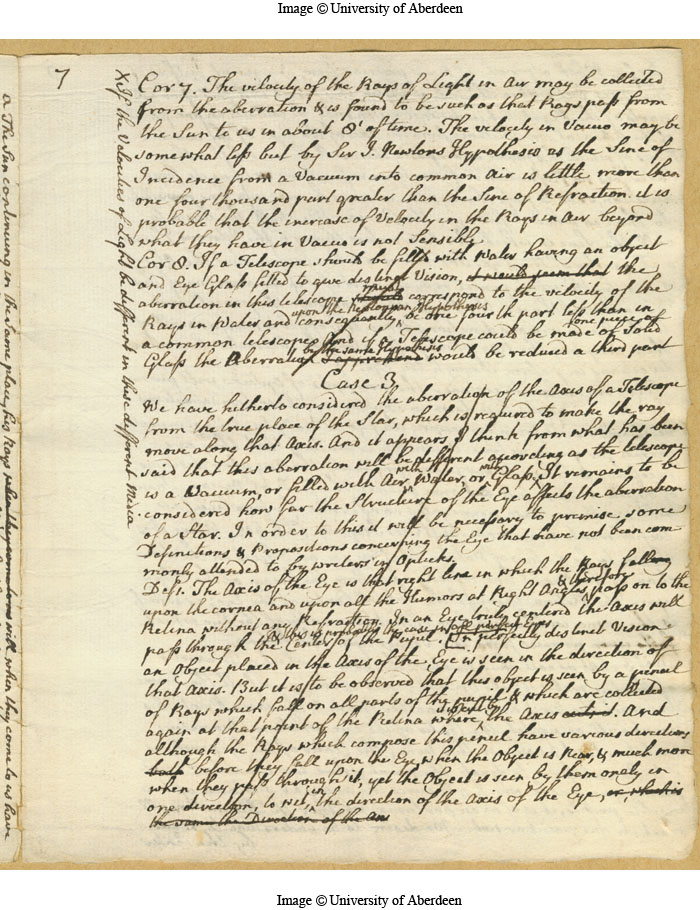 Image © University of Aberdeen
7
Cor 7. The velocity of the Rays of Light in Air may be collected
from the aberration & is found to be such as that Rays pass from
the Sun to us in about 8' of time. The velocity in Vacuo may be
somewhat less but by Sir I. Newtons Hypothesis as the Sine of
Incidence from a Vacuum into common Air is little more than
one four thousand part greater than the Sine of Refraction. it is
probable that the increase of Velocity in the Rays in Air beyond
what they have in Vacuo is not Sensible
Cor 8. If a Telescope should be filled with Water having an object
and Eye Glass fitted to give distinct Vision, it would seem that the
aberration in this telescope must correspond to the velocity of the
Rays in Water and consequently upon the Newtonian Hypothesis be one fourth part less than in
a common telescope. And if a Telescope could be made of one piece of Solid
Glass the Aberration by the same Hypothesis I apprehend would be reduced a third part
Case 3
We have hitherto considered the aberration of the Axis of a Telescope
from the true place of the Star, which is required to make the ray
move along that Axis. And it appears I think from what has been
said that this aberration will be different according as the telescope
is a Vacuum, or filled with Air, with Water, or with Glass. It remains to be
considered how far the Structure of the Eye affects the aberration
of a Star. In order to this it will be necessary to premise some
Definitions & Propositions concerning the Eye that have not been com
monly attended to by writers in Opticks.
Defs. The Axis of the Eye is that right line in which the Rays falling
upon the cornea and upon all the Humors at Right Angles, & therefore pass on to the
Retina without any Refraction. In an Eye truly centered the Axis will
pass through the Center of the Pupil & this is probably the case in all perfect Eyes In perfectly distinct Vision
an Object placed in the Axis of the Eye is seen in the direction of
that Axis. But it is to be observed that this object is seen by a pencil
of Rays which fall on all parts of the pupil & which are collected
again at that point of the Retina where the Axis cuts it. And
although the Rays which compose this pencil have various directions
both before they fall upon the Eye, when the Object is Near, & much more
when they pass through it, yet the Object is seen by them only in
one direction, to wit, in the direction of the Axis of the Eye, or, which is
the same the Direction of the
X If the Velocities of Light be different in these different Media
a The Sun continuing in the same place, his Rays will when they come to us have
Image © University of Aberdeen